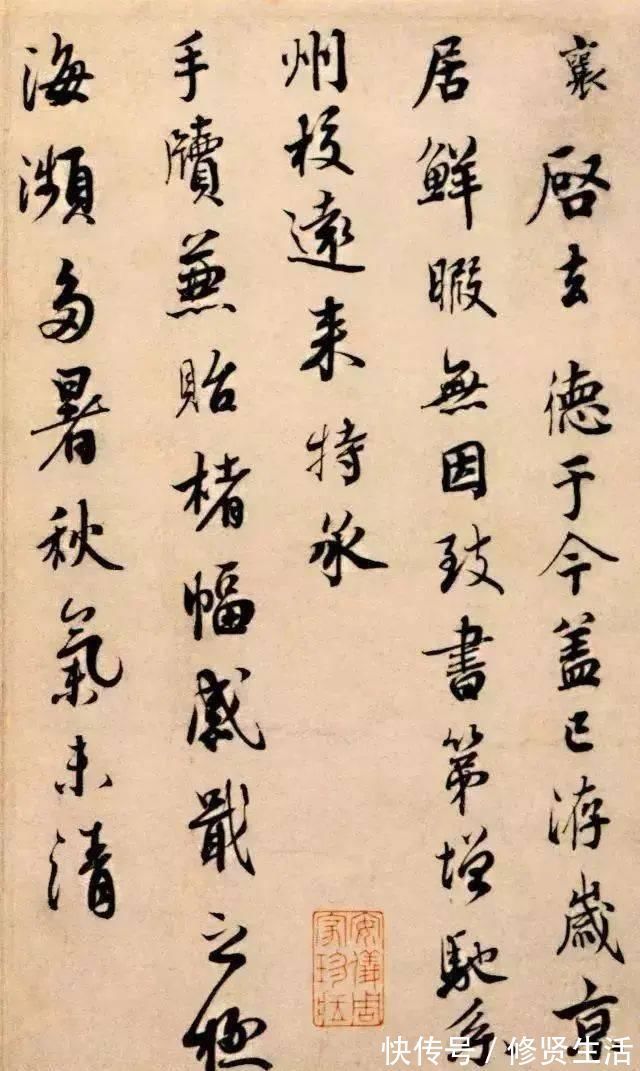 襄啓去德于今盖已洊歲京
居鮮暇無因致書第增馳系
州校遠来特承
手牘兼貽楮幅感戢之極
海瀕多暑秋氣未清
安儀周
家珍藏
快传号/修贤生活